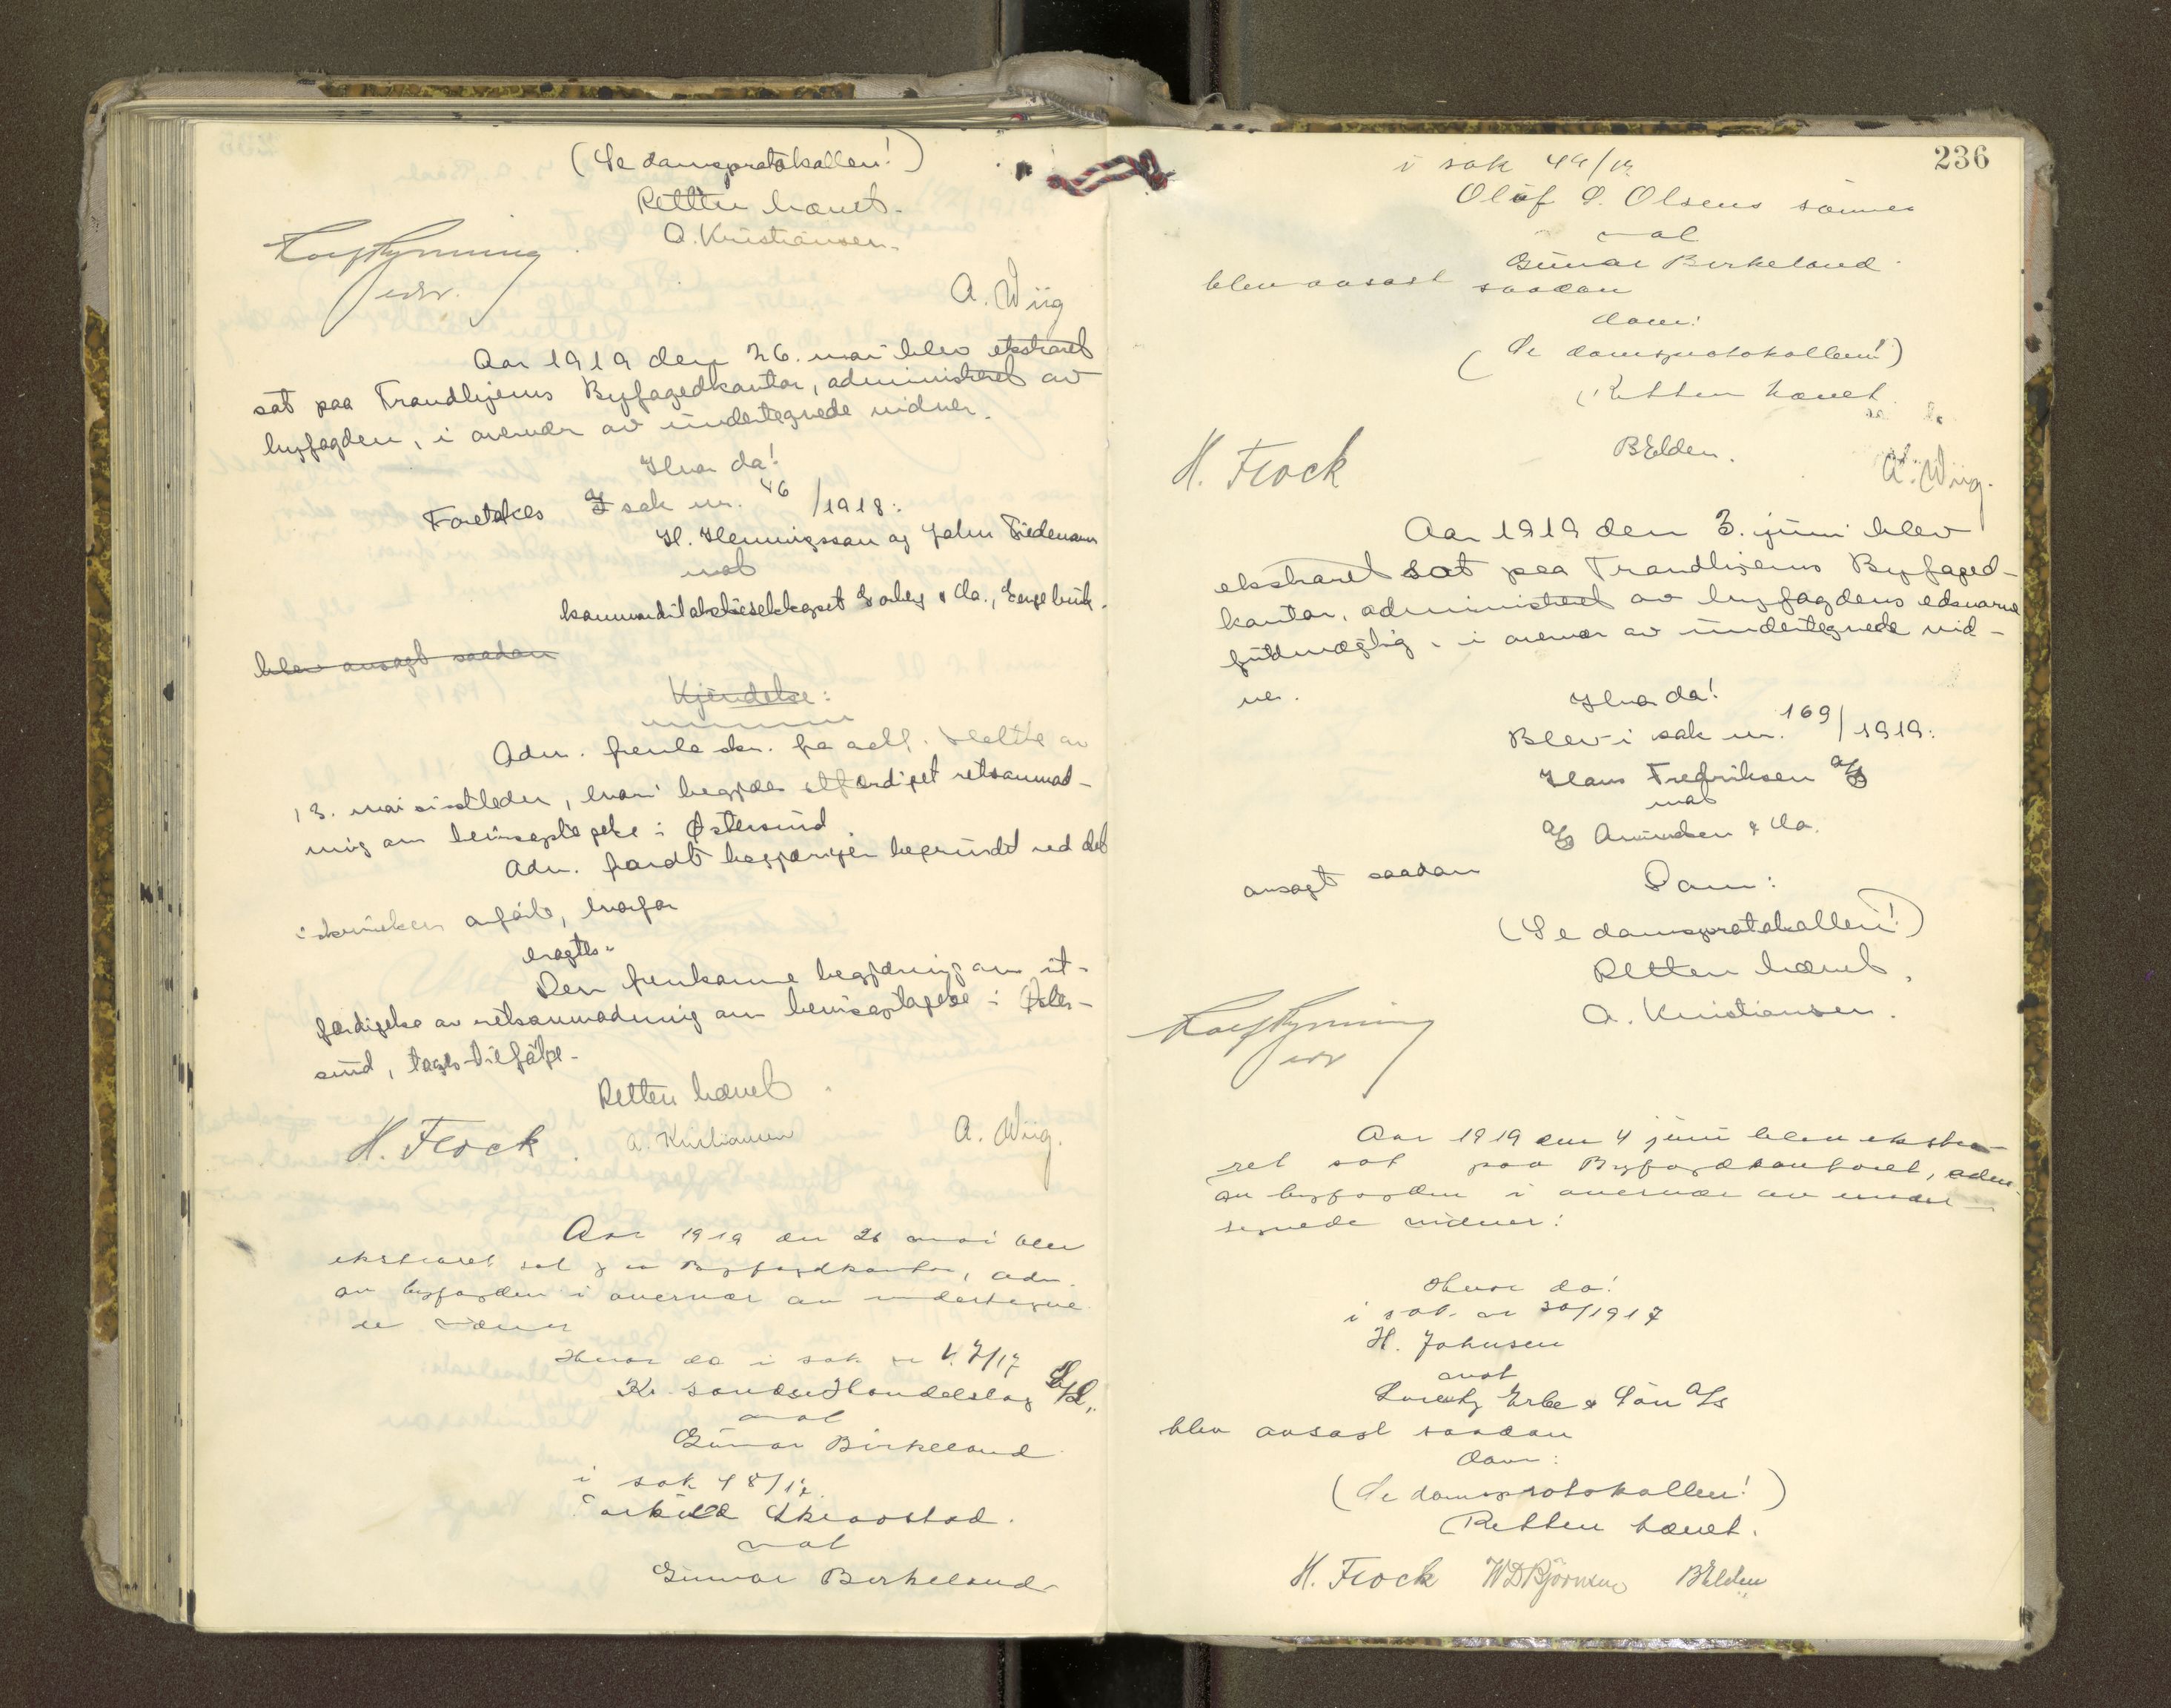 (Se domsprotokollen!)
Retten hævet.
A. Kristiansen.
A. Wiig
Aar 1919 den 26. mai blev ekstraret
sat paa Trondhjems Byfogedkontor, administreret av
byfogden, i overvær av undertegnede vidner.
Hvor da!
Foretokes I sak nr. 46/1918:
H. Henningsson og John Tiedemann
mot
kommanditaktieselskapet Sorley & Co., Engebrik.
blev avsagt saadan
Kjendelse:
Adm. fremla skr. fra adv. av
13. mai sistleden, hvori begjæres utfærdiget retsanmod-
ning om bevisoptagelse i Østersund.
Adm. fandt begjæringen begrundet ved det
i skrivelsen anførte, hvorfor
eragtes:
Den fremkomne begjæring om ut-
færdigelse av retsanmodning om bevisoptagelse i Øster-
sund, tages tilfølge.
Retten hævet.
H. Frock. A. Kristiansen A. Wiig.
Aar 1919 den 26 mai blev
ekstraret sat paa Byfogdkontor, adm.
av byfogden i overvær av undertegne
de vidner
Hvor da i sak nr 47/17
Kr. sunds Handelslag
mot
Gunnar Birkeland
i sak 48/17
Skraastad.
mot
Gunnar Birkeland
236
i sak 49/17
Oluf S. Olsens sønner
mot
Gunnar Birkeland
blev avsagt saadan
dom:
(Se domsprotokollen!)
Retten hævet.
H. Frock BElden. A. Wiig.
Aar 1919 den 3. juni blev
ekstraret sat paa Trondhjems Byfoged-
kontor, administreret av byfogdens edsvorne
fuldmægtig, i overvær av undertegnede vid-
ner.
Hvor da!
Blev i sak nr. 169/1919:
Hans Fredriksen A/S
mot
A/S Amundsen & Co.
avsagt saadan
Dom:
(Se domsprotokollen!)
Retten hævet.
A. Kristiansen.
Aar 1919 den 4 juni blev ekstra-
ret sat paa Byfogdkontoret, adm.
av byfogden i overvær av under-
tegnede vidner:
Hvor da!
i sak nr 30/1917
H. Johnsen
mot
Lorentz Erbe & Søn A/S
blev avsagt saadan
dom:
(Se domsprotokollen!)
Retten hævet.
H. Frock WDBjörnsen BElden